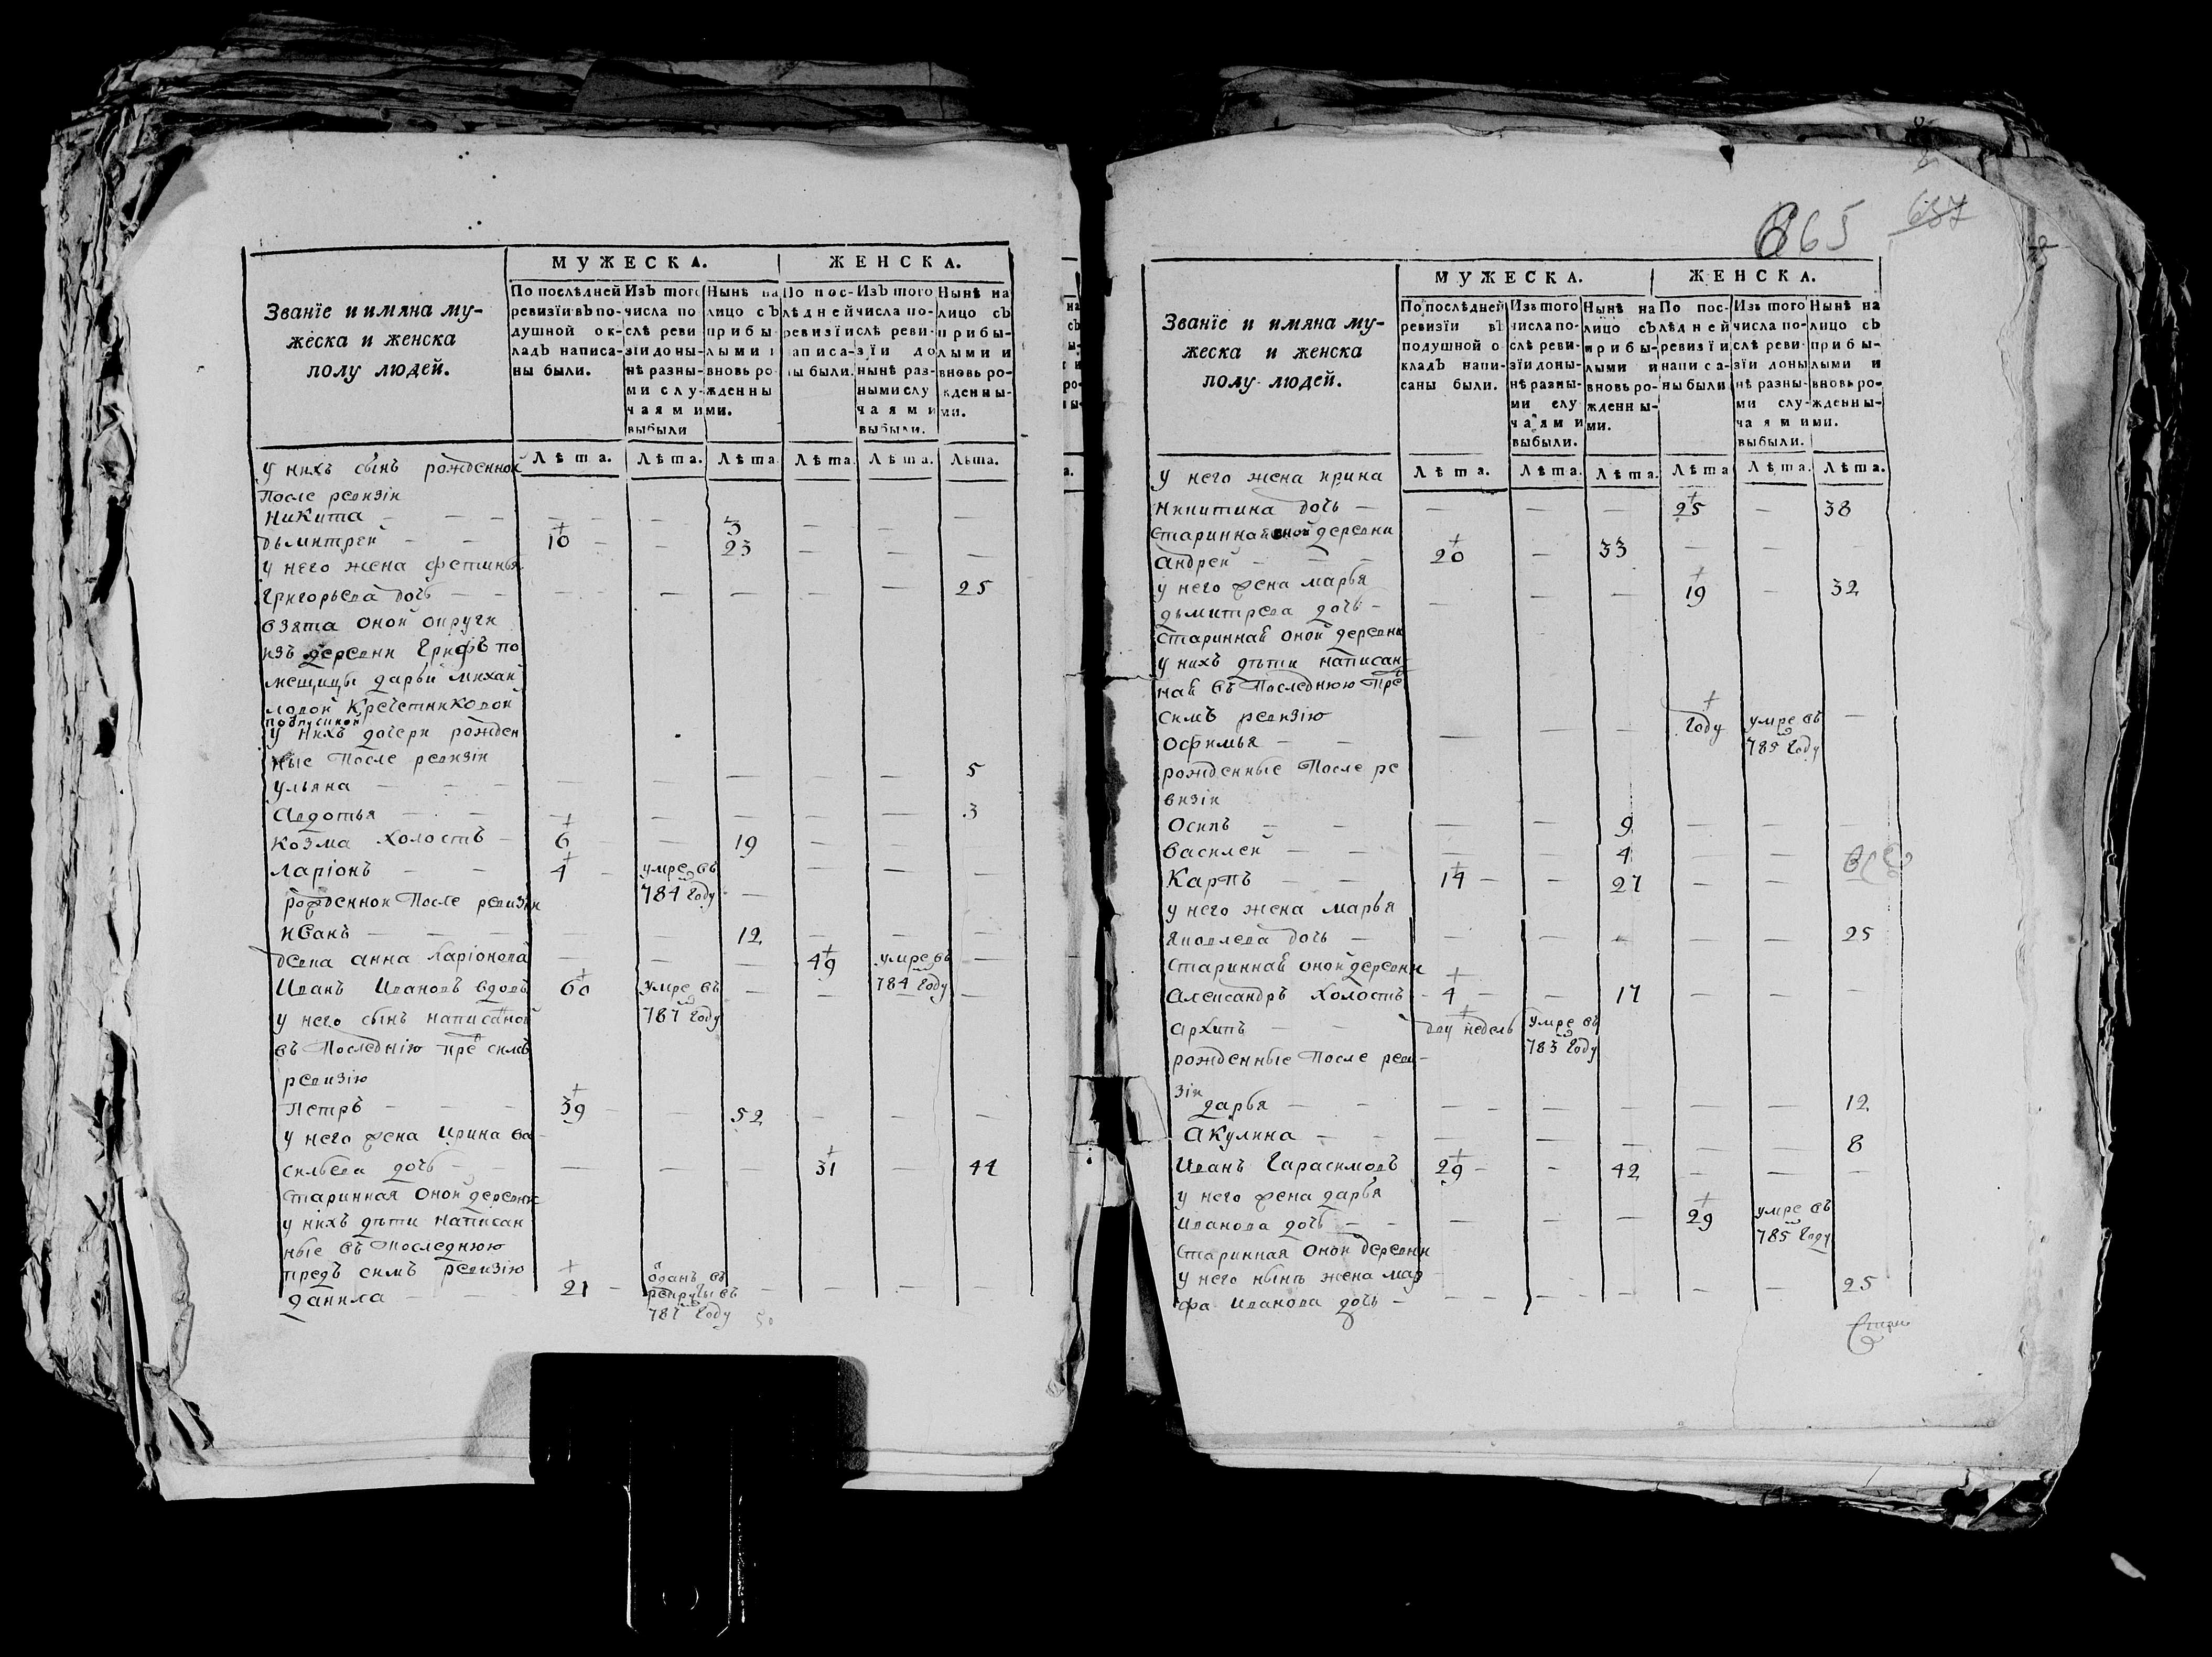 МУЖЕСКА. ЖЕНСКА.
Званїе и имяна му-
жеска и женска
полу людей.
По послѣдней ревизїи въ по-душной ок-ладъ написа-ны были.
Изъ того числа по слѣ реви зїи до ны-нѣ разны-ми слу-чаями выбыли
Нынѣ на лицо съ прибы лыми и вновь ро жденны ми.
По пос-лѣдней ревизїи написа-ны были.
Изъ того числа по-слѣ реви-зїи до нынѣ раз-ными слу чаями выбыли.
Нынѣ на лицо съ прибы-лыми и вновь ро-жденны-ми.
Лѣта. Лѣта. Лѣта. Лѣта. Лѣта. Лѣта.
у нихъ сынъ рожденной
после ревизіи
Никита — 3
дьмитрей 10 — 23
у него жена фетинья
григорьева дочь — 25
взята оной округи
изъ деревни Грифъ по
мещицы дарьи михай
ловой Кречетниковой
у нихъ дочери рожден
ные После ревизіи
ульяна — 5
Авдотья — 3
козма холостъ 6 — 19
Ларіонъ 4 умре въ
784 году
рожденной После ревизіи
Иванъ — 12
девка анна Ларіонова 49 умре въ
784 году
Иванъ Ивановъ вдовъ 60 умре въ
787 году
у него сынъ написаной
въ Последнію пре симъ
ревизію
Петръ 39 — 52
у него жена Ирина ва
сильева дочь 31 — 44
старинная оной деревни
у нихъ дѣти написан
ные въ Последнюю
предъ симъ ревизію
данила 21 — оданъ въ
рекруты въ
787 году
865 637
МУЖЕСКА. ЖЕНСКА.
Званїе и имяна му-
жеска и женска
полу людей.
По послѣдней ревизїи въ подушной о кладъ напи-саны были.
Изъ того числа по-слѣ реви-зїи до ны-нѣ разны-ми слу чаями выбыли.
Нынѣ на лицо съ прибы-лыми и вновь ро-жденны-ми.
По пос-лѣдней ревизїи написа-ны были
Изъ того числа по-слѣ реви зїи до ны нѣ разны-ми слу-чаями выбыли.
Нынѣ на лицо съ прибы-лыми и вновь ро-жденны-ми.
Лѣта. Лѣта. Лѣта. Лѣта Лѣта. Лѣта.
у него жена ирина
Никитина дочь — 25 — 38
стариннай оной деревни
андрей 20 — 33
у него жена марья
дьмитрева дочь — 19 — 32
стариннай оной деревни
у нихъ дѣти написан
най въ Последнюю Пре
симъ ревизію
Офимья — году умре въ
785 году
рожденные После ре
визіи
Осипъ — 9
василей — 4
Карпъ 14 — 27
у него жена марья
яковлева дочь — 25
стариннай оной деревни
Александръ холостъ 4 — 17
архипъ дву недель умре въ
783 году
рожденные После реви
зіи
дарья — 12
Акулина — 8
Иванъ Гарасимовъ 29 — 42
у него жена дарья
иванова дочь — 29 умре въ
785 году
старинная оной деревни
у него нынѣ жена мар
фа Иванова дочь — 25